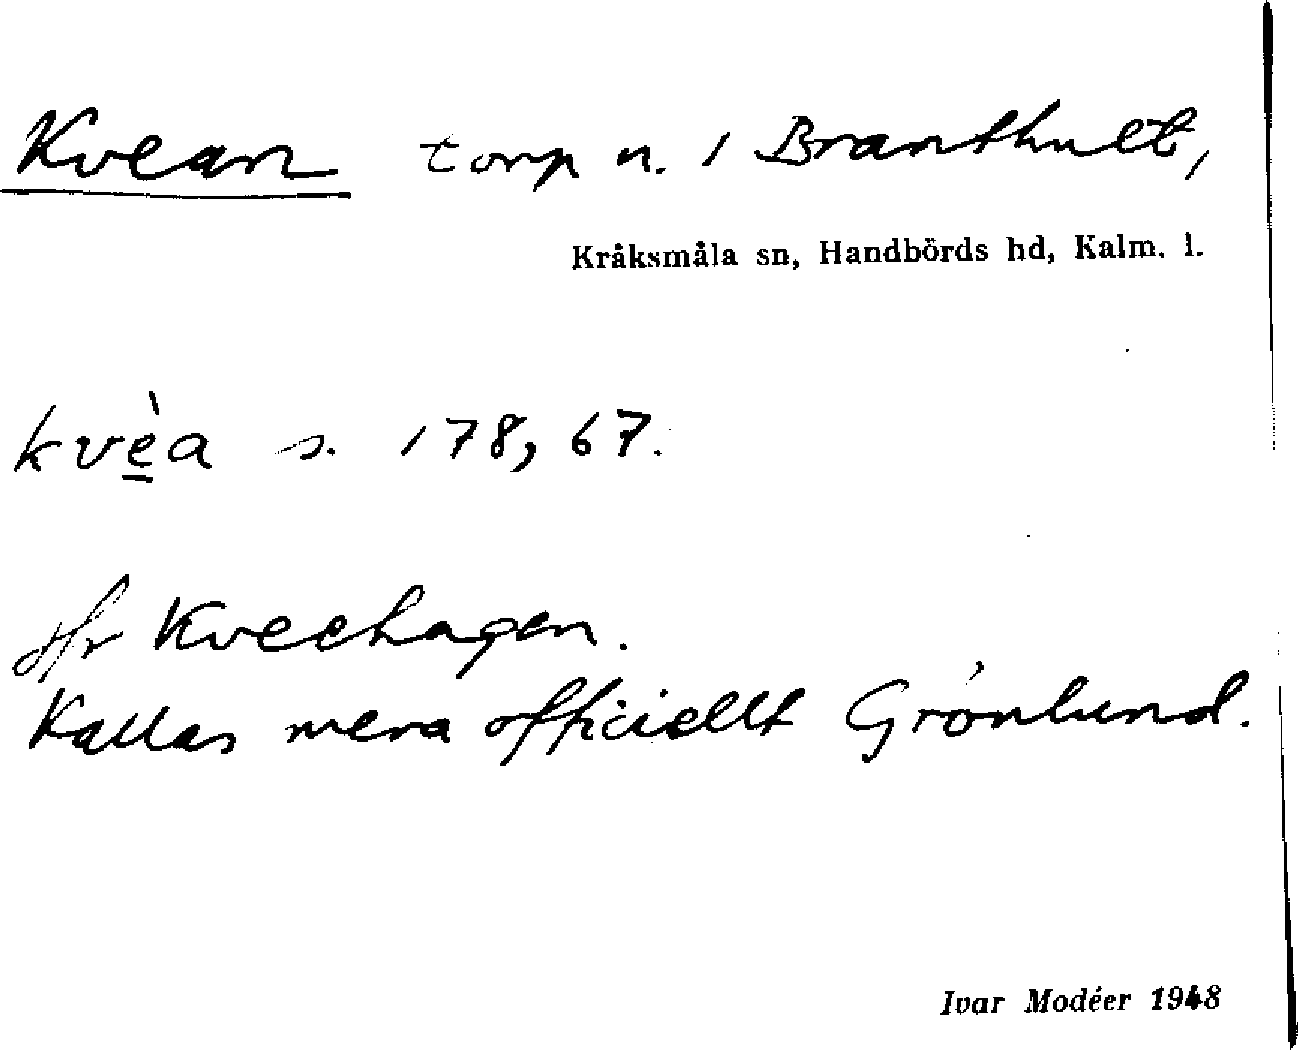 Kvean torp n. 1 Branthult,
Kråksmåla sn, Handbörds hd, Kalm. l.
kvè̱a s. 178, 67.
Jfr Kveehagen.
Kallas mera officiellt Grönlund.
Ivar Modéer 1948